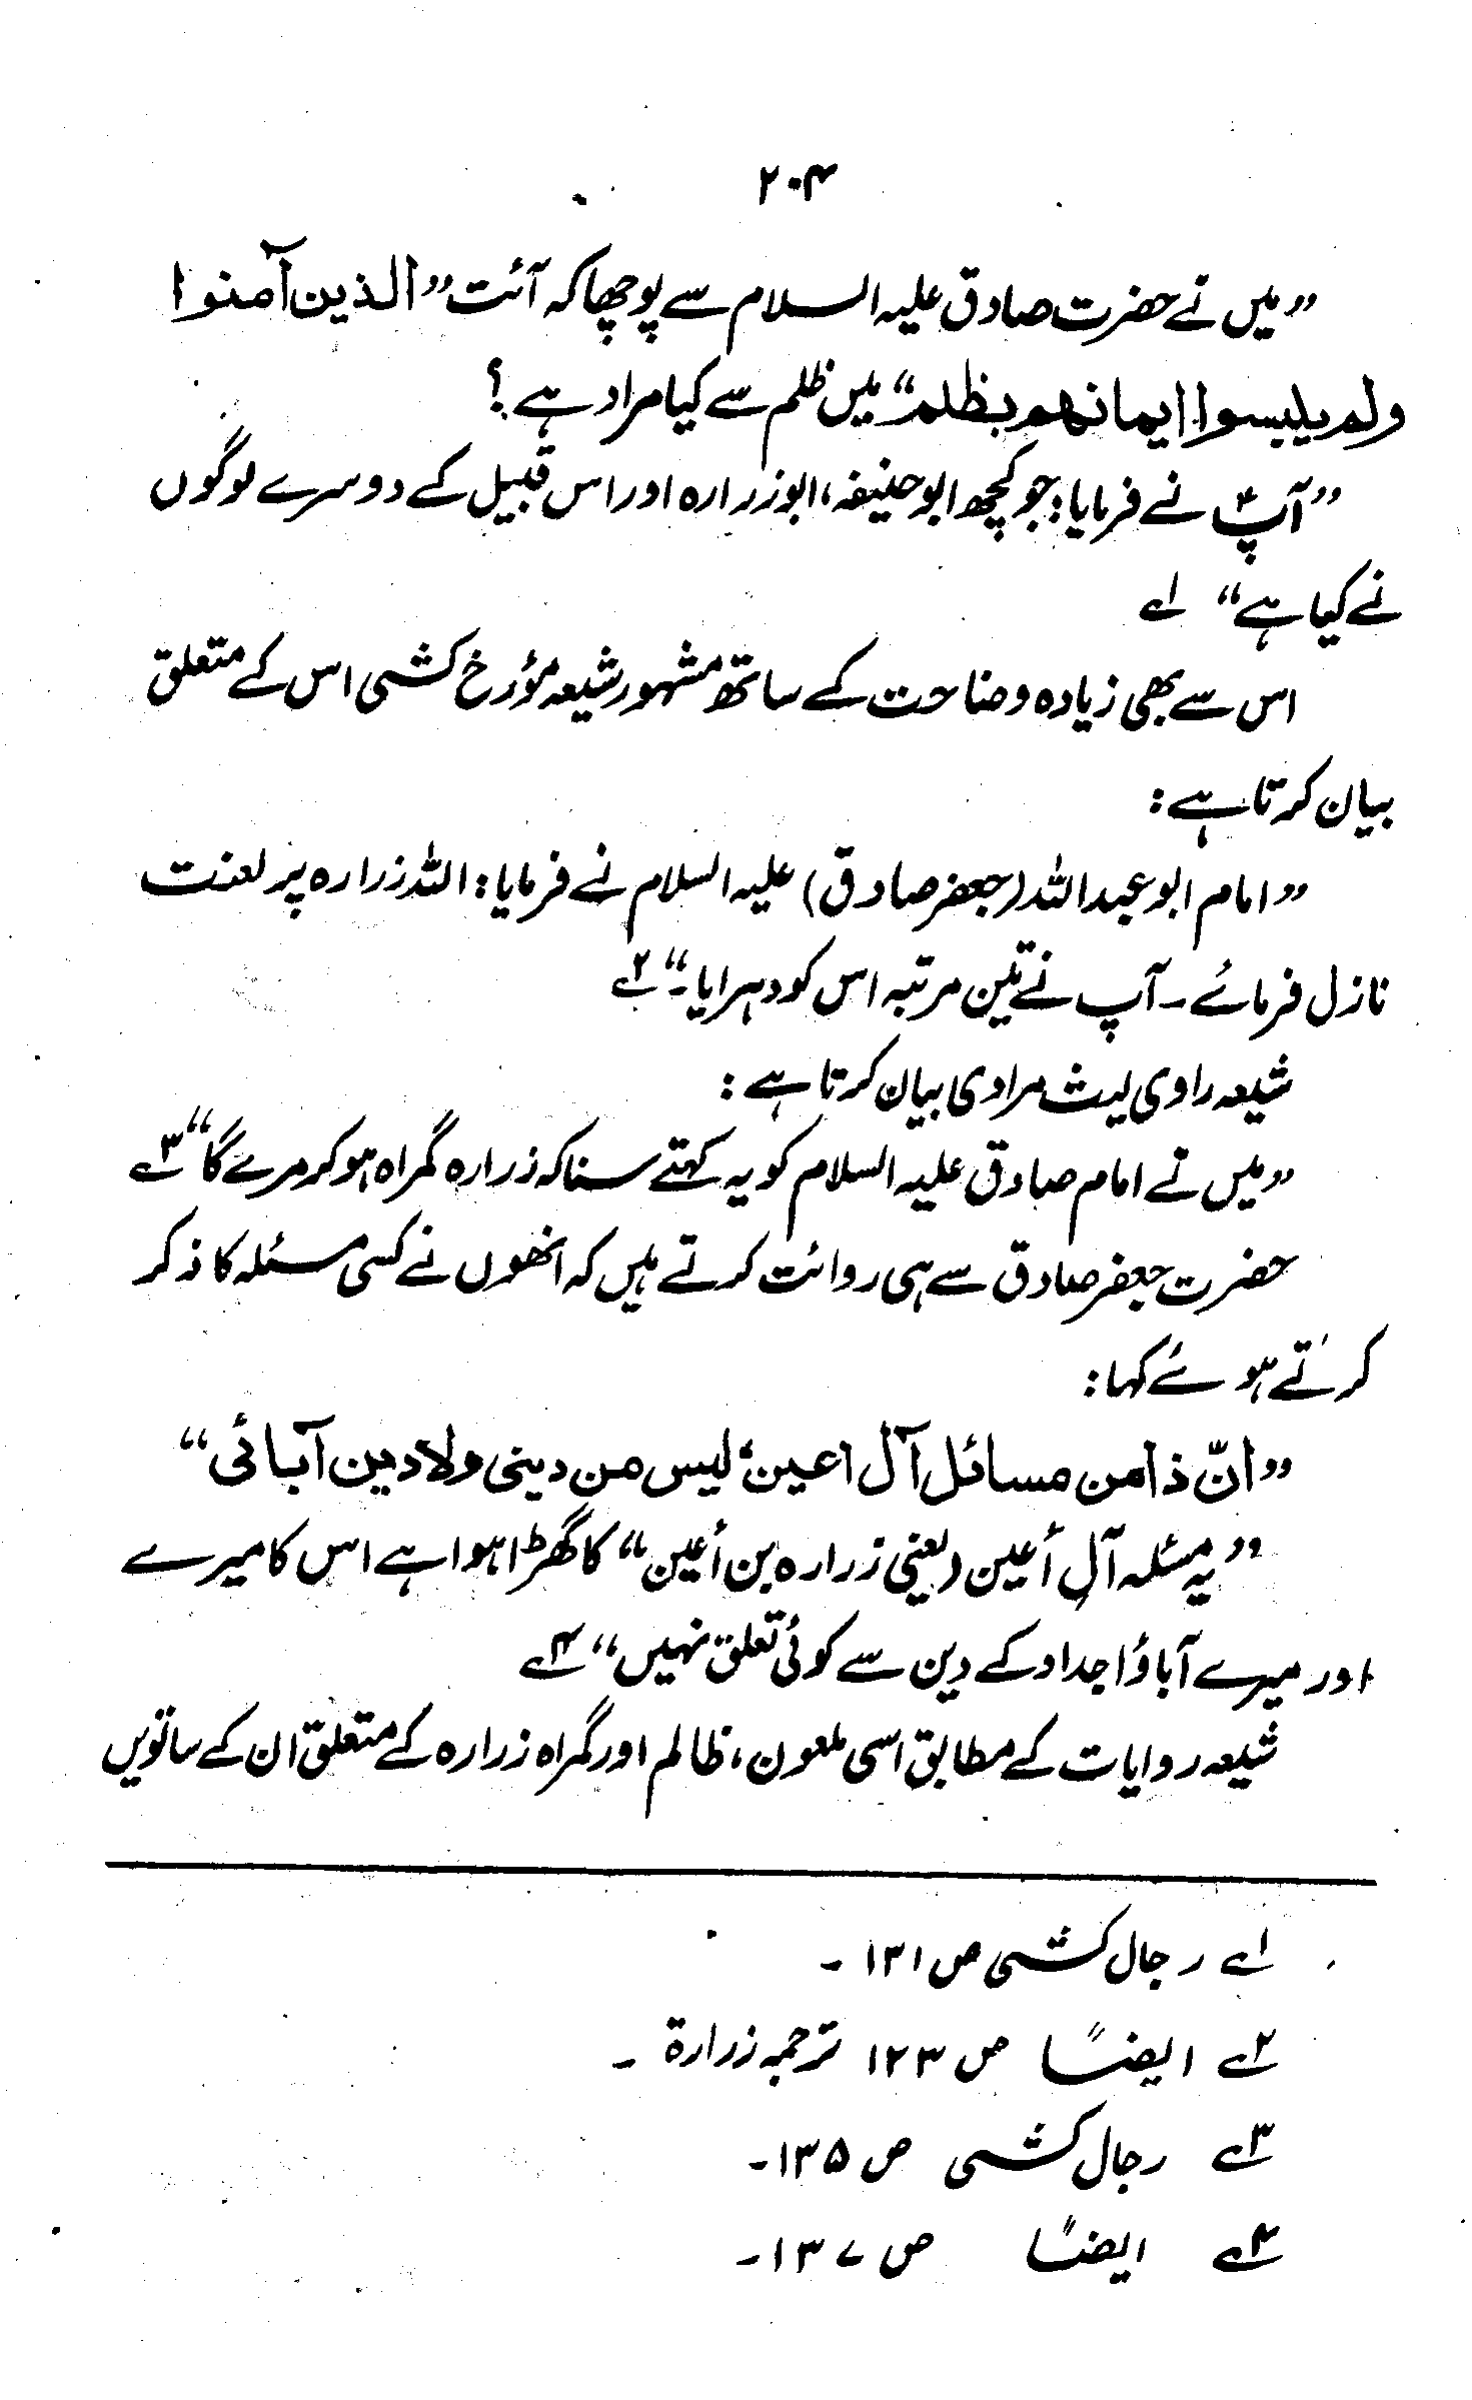 ۲۰۴
”میں نے حضرت صادق علیہ السلام سے پوچھا کہ آئت ”الذین آمنوا
ولم یلبسوا ایمانھم بظلم“ میں ظلم سے کیا مراد ہے؟
”آپؑ نے فرمایا: جو کچھ ابو حنیفہ، ابو زرارہ اور اس قبیل کے دوسرے لوگوں
نے کیا ہے“ ۱ے
اس سے بھی زیادہ وضاحت کے ساتھ مشہور شیعہ مؤرخ کشی اس کے متعلق
بیان کرتا ہے:
”امام ابو عبداللہ (جعفر صادق) علیہ السلام نے فرمایا: اللہ زرارہ پر لعنت
نازل فرمائے۔ آپ نے تین مرتبہ اس کو دہرایا۔“ ۲ے
شیعہ راوی لیث مرادی بیان کرتا ہے:
”میں نے امام صادق علیہ السلام کو یہ کہتے سنا کہ زرارہ گمراہ ہو کر مرے گا“ ۳ے
حضرت جعفر صادق سے ہی روائت کرتے ہیں کہ انھوں نے کسی مسئلہ کا ذکر
کرتے ہوئے کہا:
”انّ ذا من مسائل آل اعین، لیس من دینی ولا دین آبائی“
”یہ مسئلہ آلِ أعین (یعنی زرارہ بن أعین“ کا گھڑا ہوا ہے اس کا میرے
اور میرے آباؤ اجداد کے دین سے کوئی تعلق نہیں“ ۴ے
شیعہ روایات کے مطابق اسی ملعون، ظالم اور گمراہ زرارہ کے متعلق ان کے ساتویں
۱ے رجال کشی ص ۱۳۱۔
۲ے ایضاً ص ۱۲۳ ترجمہ زرارة۔
۳ے رجال کشی ص ۱۳۵۔
۴ے ایضاً ص ۱۳۷۔